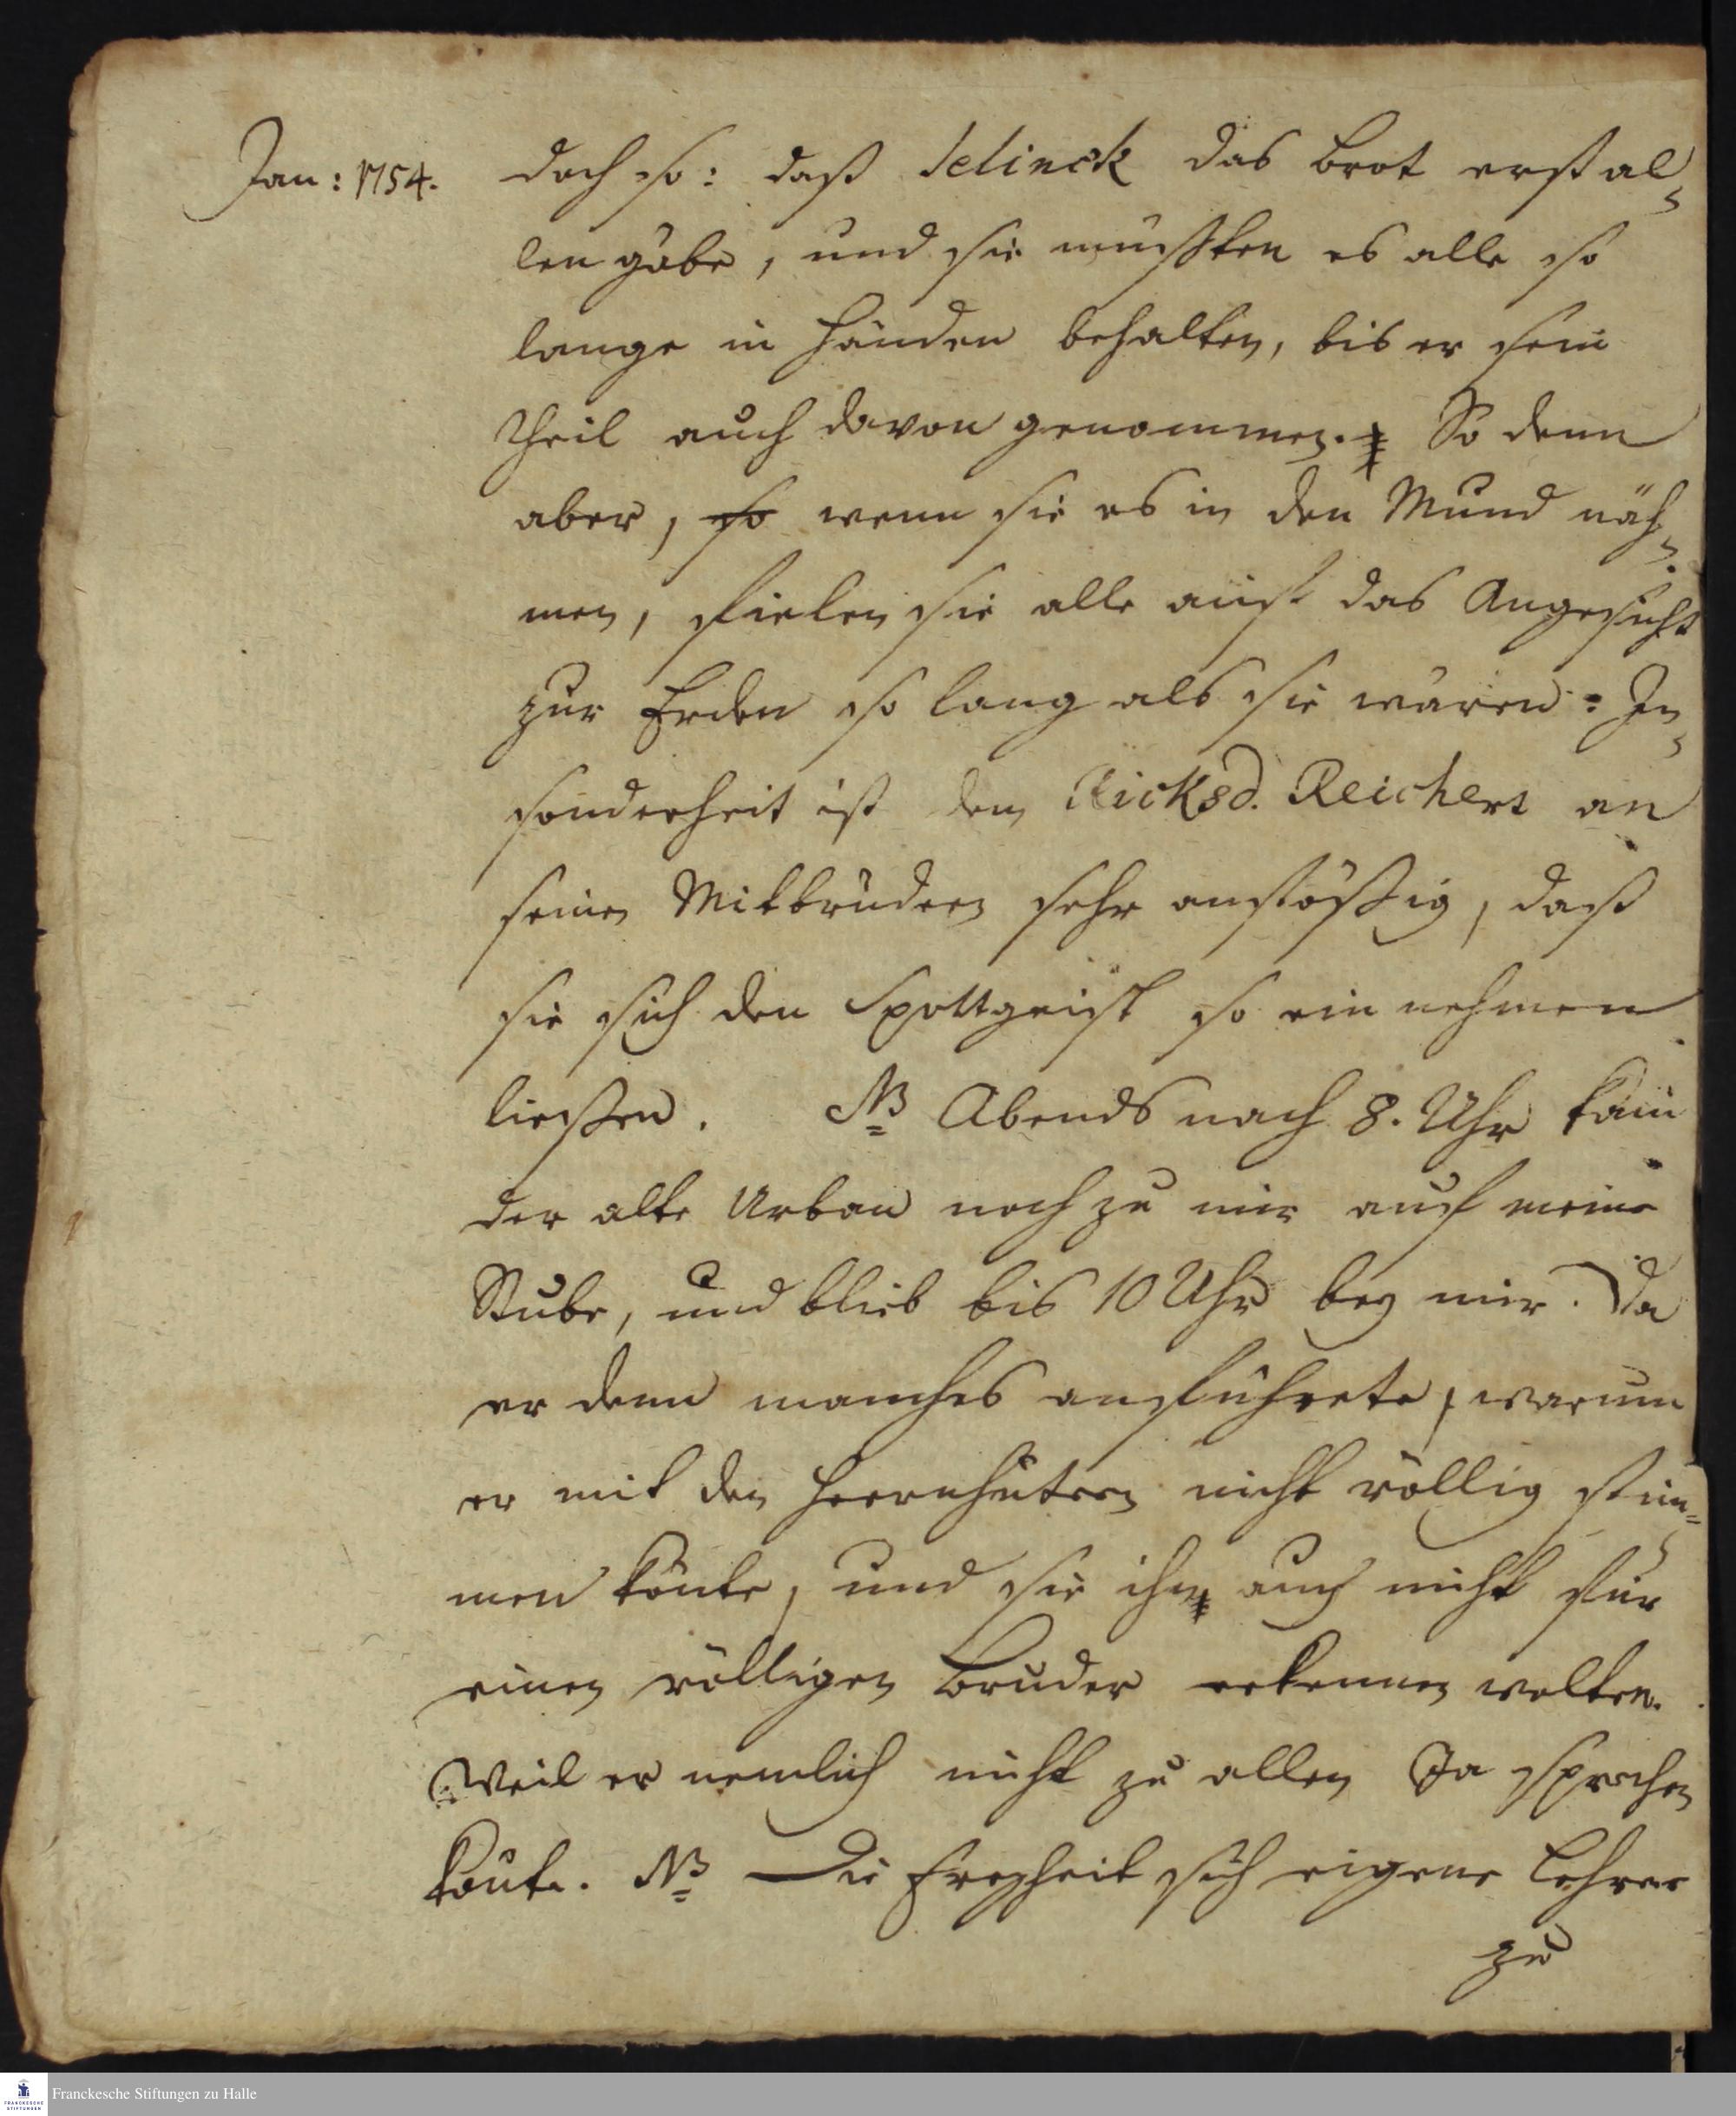 Jan: 1754.
doch so: daß Jelinek das Brot erst al-
len gäbe, und sie müssten es alle so
lange in Händen behalten, bis er sein
Theil auch davon genommen. So denn
aber, so wenn sie es in den Mund näh-
men, fielen sie alle aufs das Angesicht
zur Erden so lang als sie wären: In-
sonderheit ist dem Ricksd. Reichert an
seinen Mitbrüdern sehr anstößig, daß
sie sich den Spottgeist so ein nehmen
ließen. NB Abends nach 8. Uhr kam
der alte Urban noch zu mir auf meine
Stube, und blieb bis 10 Uhr bey mir. Da
er denn manches anführete, warum
er mit den Herrnhutern nicht völlig stim-
men könte, und sie ihn auch nicht für
einen völligen Bruder erkennen wolten.
Weil er nemlich nicht zu allen Ja sprechen
könte. NB Die Freyheit sich eigene Lehrer
zu
Franckesche Stiftungen zu Halle
FRANCKESCHE
STIFTUNGEN